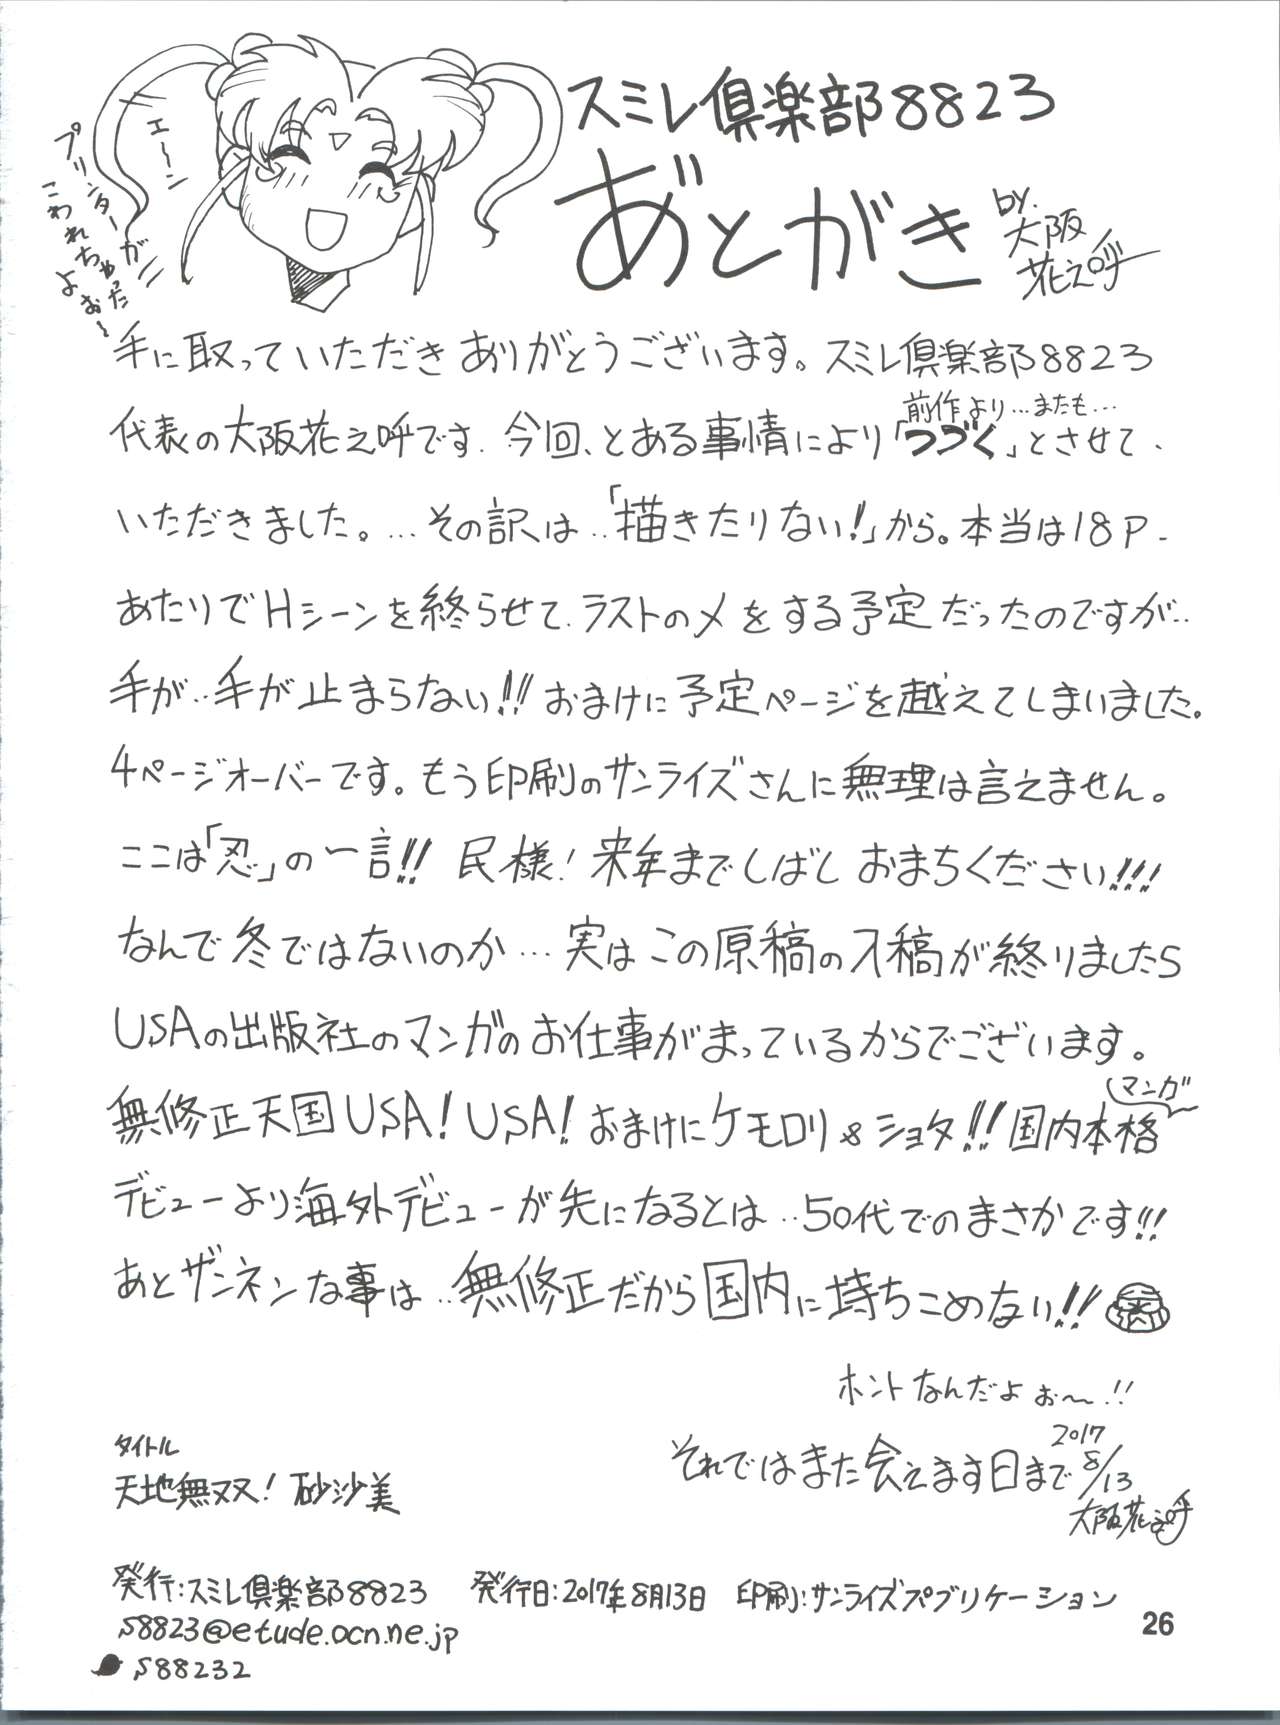 スミレ倶楽部8823
あとがき
by.
大阪
花之呼
エ〜ン
プリンターが
こわれちゃった
よぉ〜
手に取っていただきありがとうございます。スミレ倶楽部8823
前作より…またも…
代表の大阪花之呼です.今回、とある事情により「つづく」とさせて、
いただきました。…その訳は‥「描きたりない!」から。本当は18P.
あたりでHシーンを終らせて.ラストの〆をする予定だったのですが‥
手が‥手が止まらない!!おまけに予定ページを越えてしまいました。
4ページオーバーです。もう印刷のサンライズさんに無理は言えません。
ここは「忍」の一言!!民様!来年までしばしおまちください!!!
なんで冬ではないのか…実はこの原稿の入稿が終りましたら
USAの出版社のマンガのお仕事がまっているからでございます。
マンガ
無修正天国USA!USA!おまけにケモロリ&ショタ!!国内本格
デビューより海外デビューが先になるとは‥50代でのまさかです!!!
あとザンネンな事は‥無修正だから国内に持ちこめない!!
ホントなんだよぉ〜!!
それではまた会えます日まで
2017
8/13
大阪花之呼
タイトル
天地無双!砂沙美
発行:スミレ倶楽部8823 発行日:2017年8月13日 印刷:サンライズパブリケーション
S8823@etude.ocn.ne.jp
S88232
26